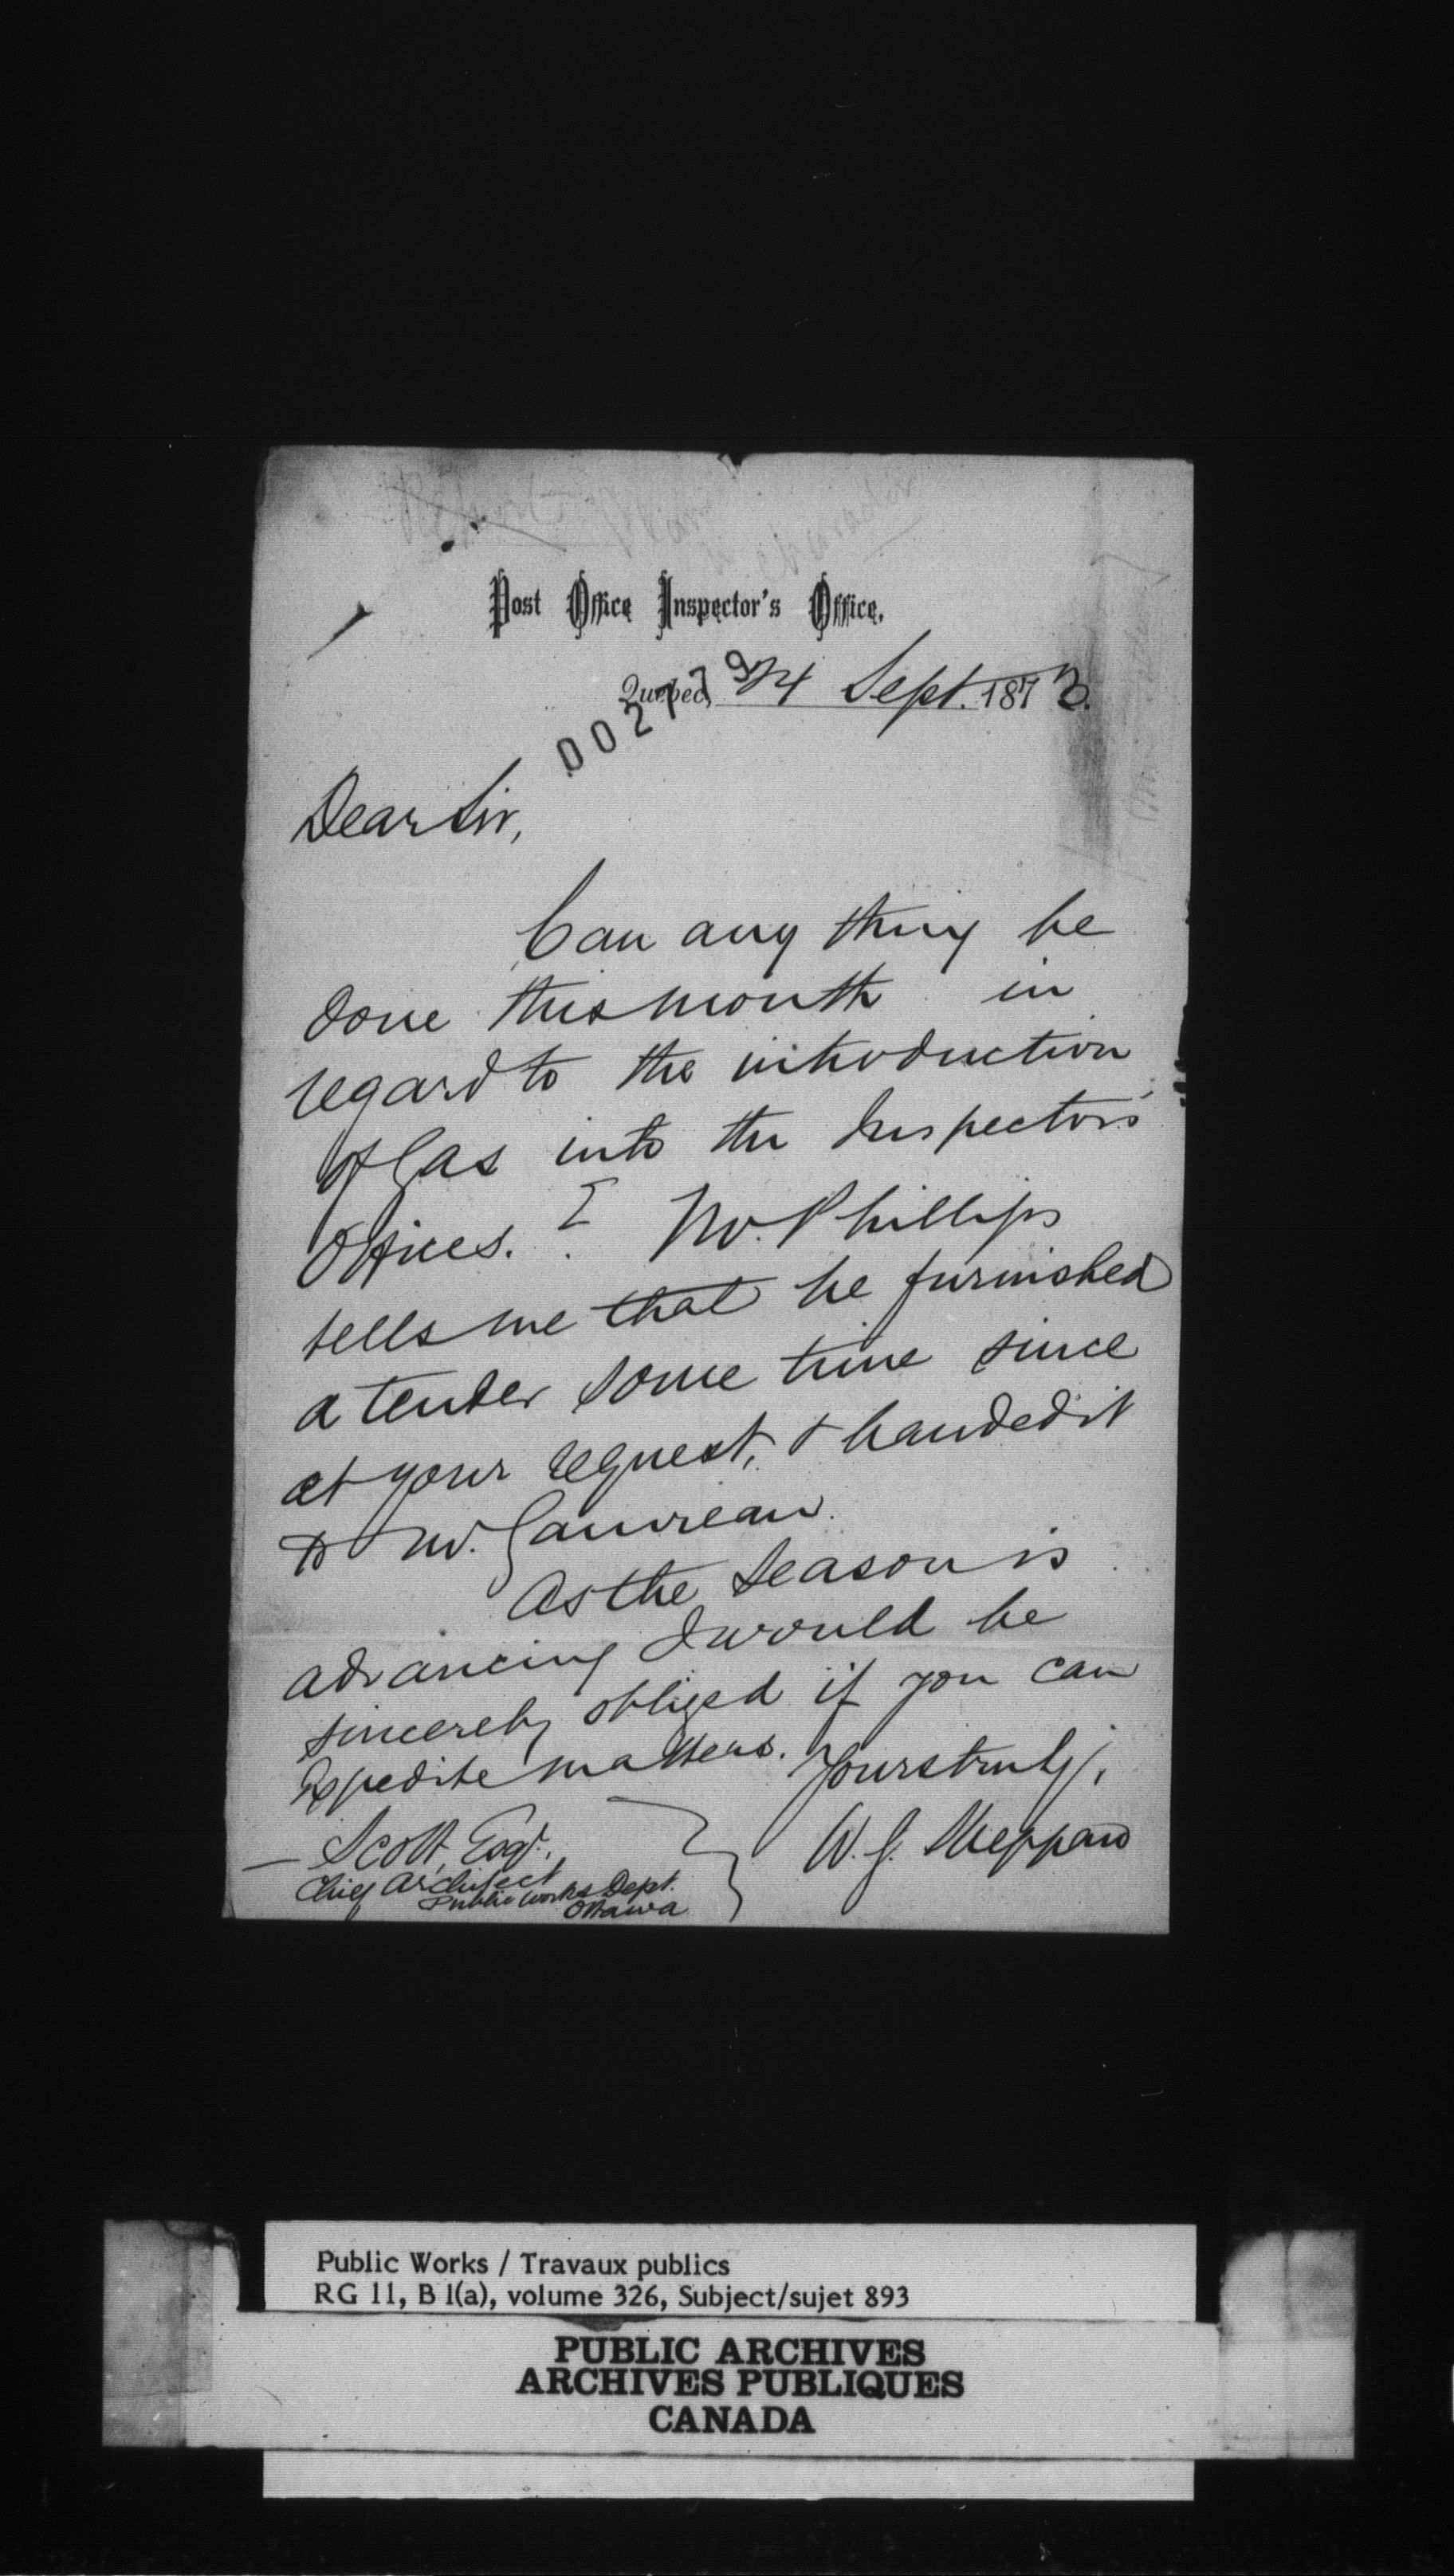 Post Office Inspector's Office.
Quebec, 24 Sept. 1873.
002779
Dear Sir,
Can any thing be
done this month in
regard to the introduction
of Gas into the Inspector's
Offices. ? Mr. Phillips
tells me that he furnished
a tender some time since
at your request, & handed it
to Mr. Gauvreau.
As the season is
advancing I would be
sincerely obliged if you can
expedite matters. Yours truly,
W. G. Sheppard
— Scott, Esqr.,
Chief Architect
Public Works Dept.
Ottawa
Public Works / Travaux publics
RG 11, B 1(a), volume 326, Subject/sujet 893
PUBLIC ARCHIVES
ARCHIVES PUBLIQUES
CANADA